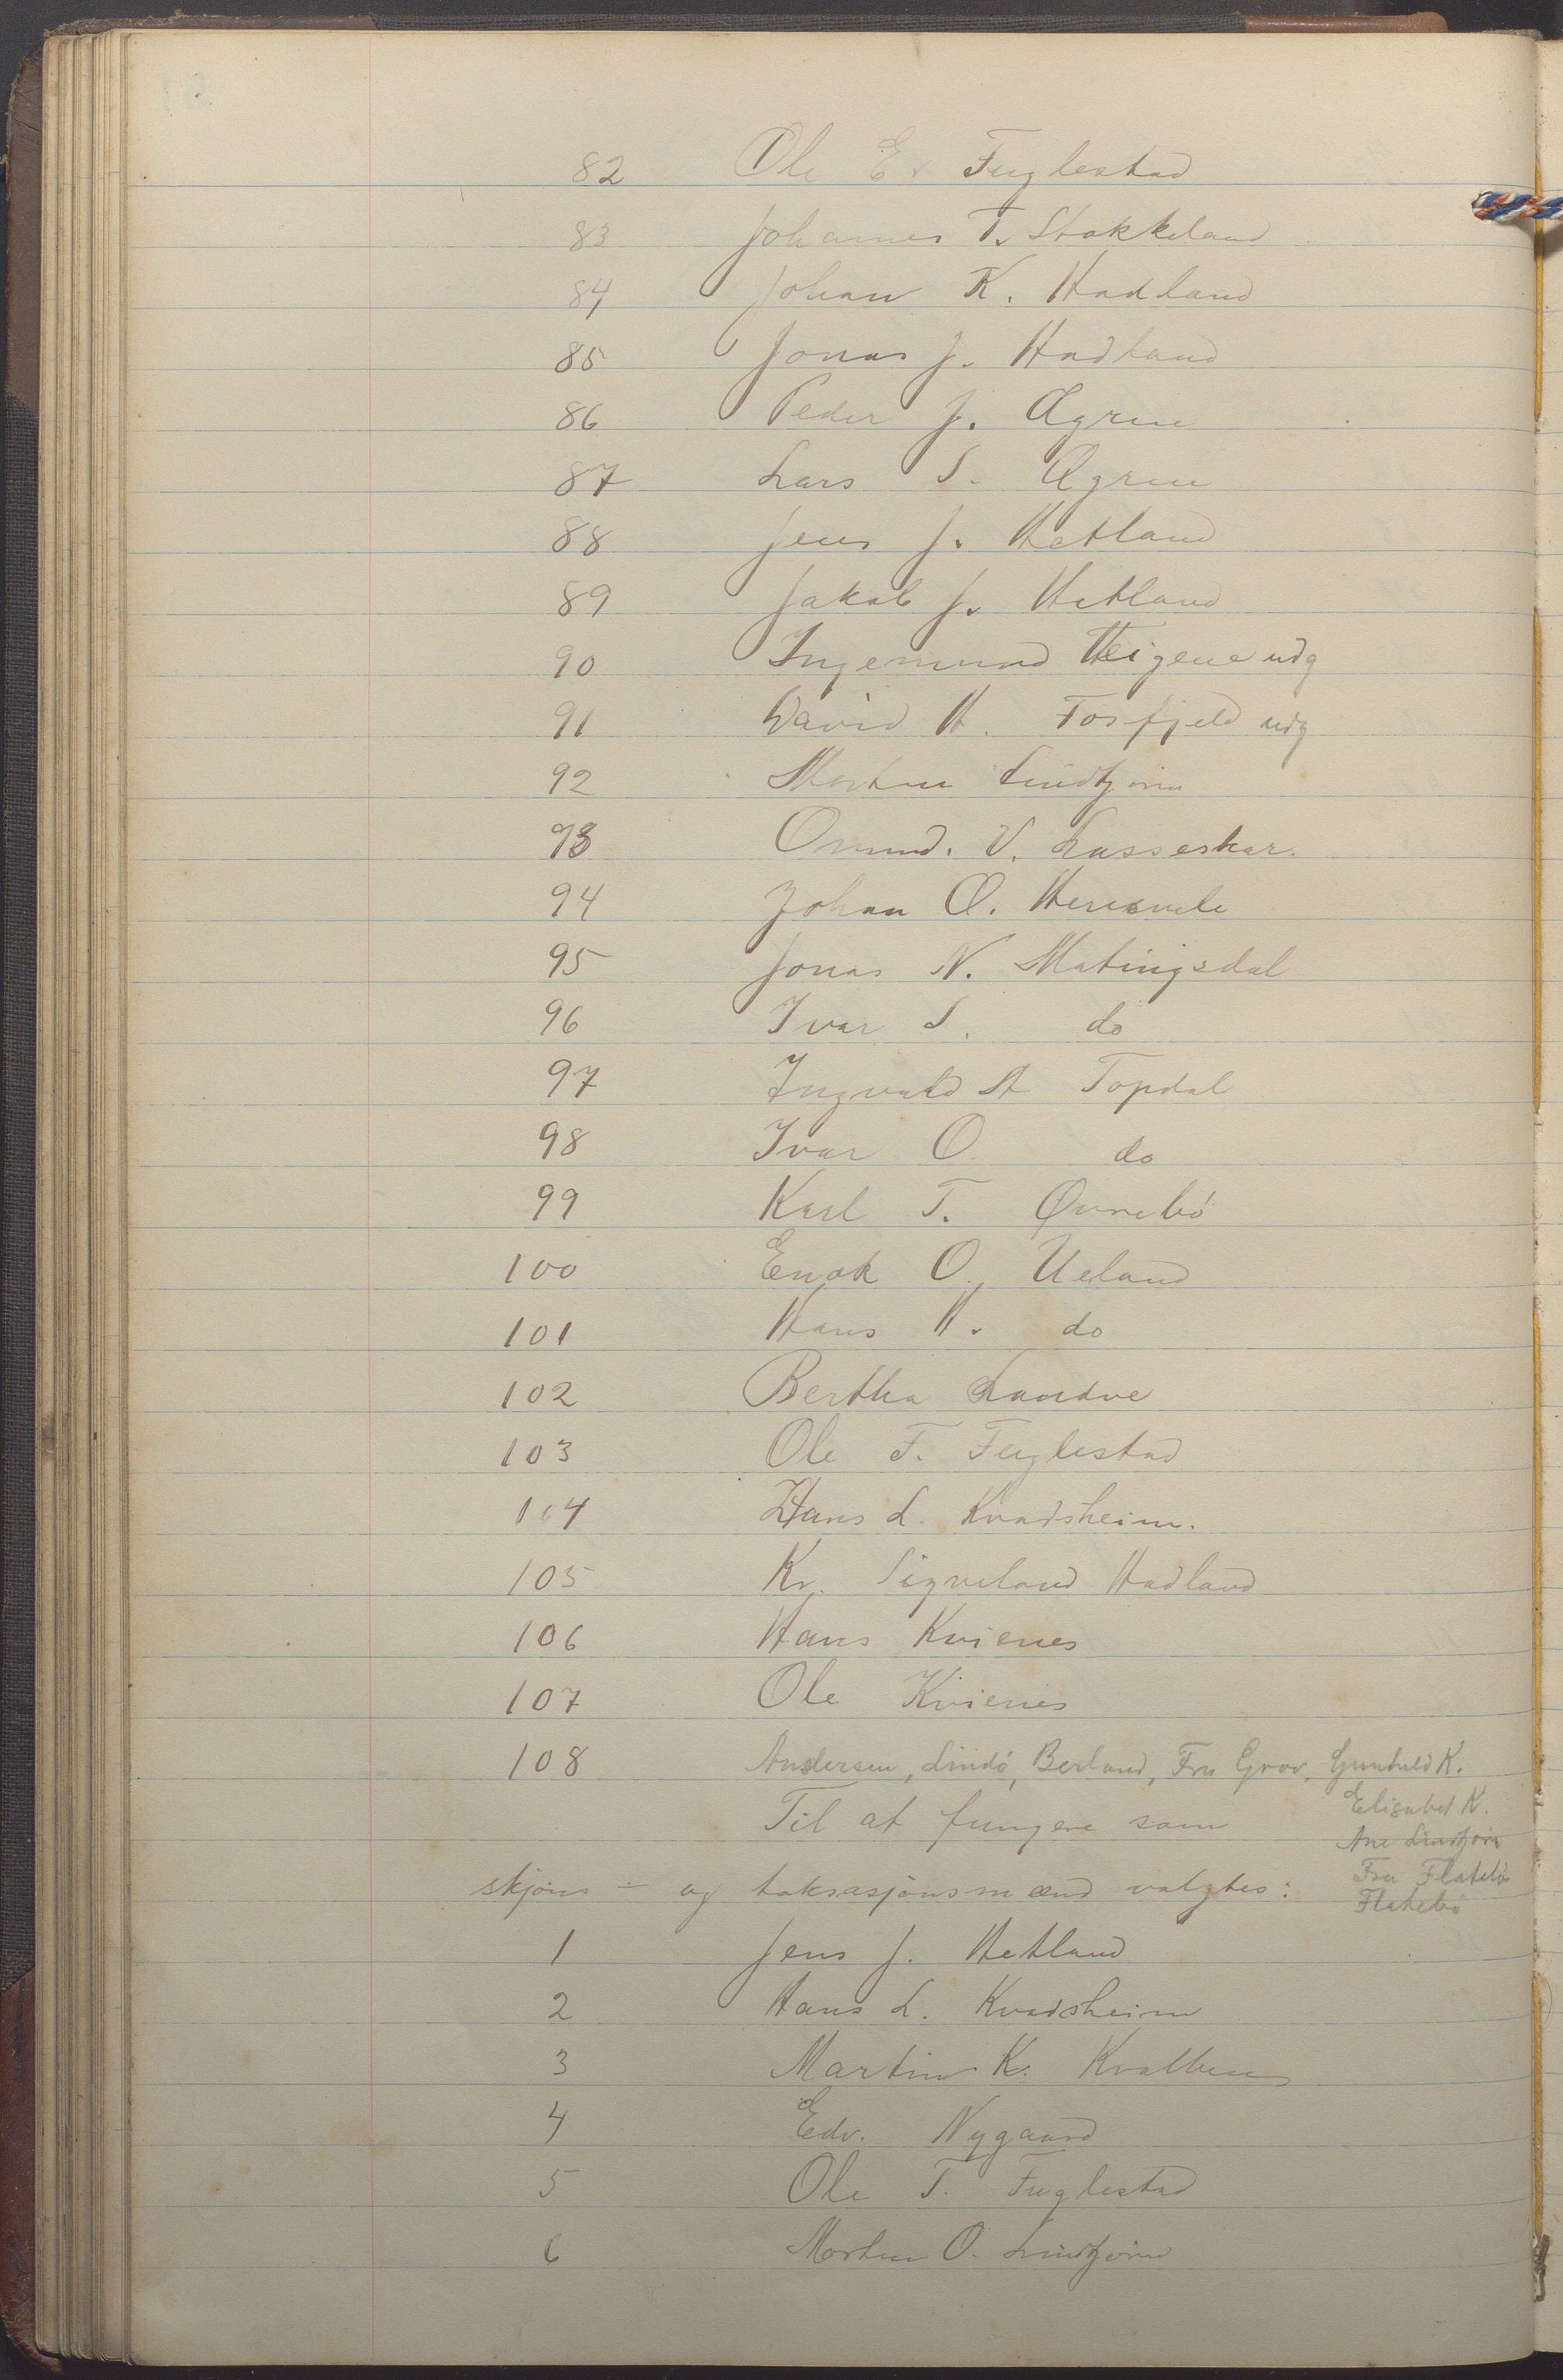 82 Ole E. Fuglestad
83 Johannes T. Stokkeland
84 Johan K. Hadland
85 Jonas J. Hadland
86 Peder J. Øgreie
87 Lars S. Øgreie
88 Jens J. Hetland
89 Jakob J. Hetland
90 Ingemund Heigene udg
91 David H. Fosfjeld udg
92 Morten Lindtjørn
93 Omund. V. Lasseskar.
94 Johan O. Heresvele
95 Jonas N. Matingsdal
96 Ivar S. do
97 Ingvald A Topdal
98 Ivar O. do
99 Karl T. Øvrebø
100 Enok O. Ueland
101 Hans H. do
102 Bertha Landve
103 Ole F. Fuglestad
104 Hans L. Kvadsheim.
105 Kr. Sigveland Hadland
106 Hans Kvienes
107 Ole Kvienes
108 Andersen, Lindø, Berland, Fru Grov, Gunhild K.
Elisabet K.
Til at fungere som
Ane Lindtjørn
Fru Flatebø
skjøns - og taksasjonsmænd valgtes:
Flatebø
1 Jens J. Hetland
2 Hans L. Kvadsheim
3 Martin K. Kvalbein
4 Edv. Nygaard
5 Ole T. Fuglestad
6 Morten O. Lindtjørn